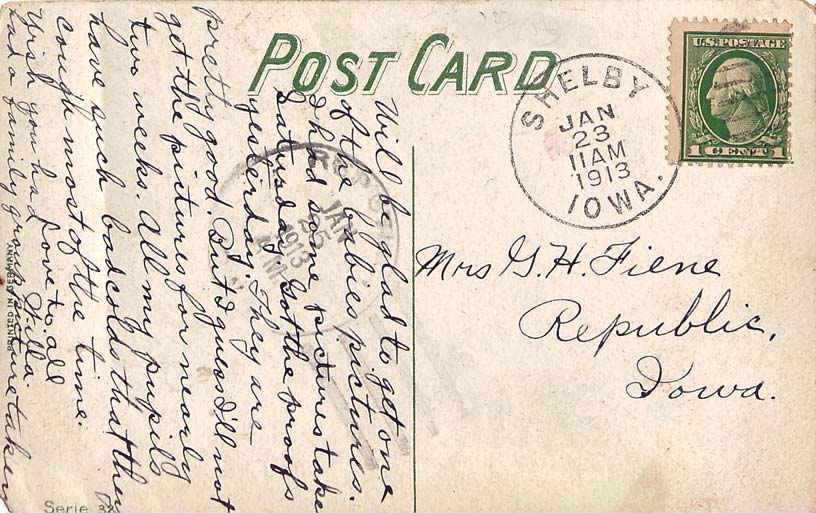 POST CARD
U.S. POSTAGE
1 CENT 1
SHELBY
JAN
23
11AM
1913
IOWA.
JAN
25
1913
Will be glad to get one
of the babies pictures.
I had some pictures take
Saturday. Got the proofs
yesterday. They are
pretty good. But I guess I'll not
get the pictures for nearly
two weeks. All my pupils
have such bad colds that they
cough most of the time.
Love to all
Willa
Wish you had
had a family group picture taken
Mrs G. H. Fiene
Republic,
Iowa.
PRINTED IN GERMANY
Serie